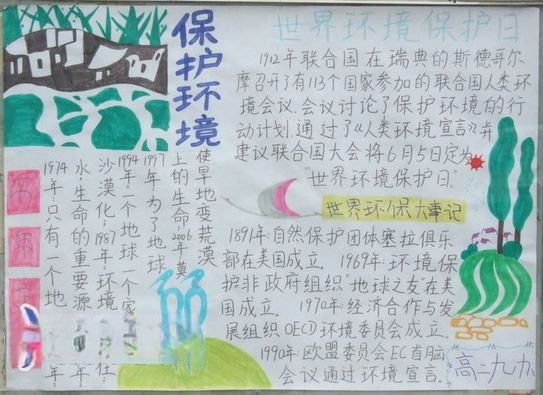 保护环境
世界环境保护日
1912年联合国在瑞典的斯德哥尔
摩召开了有113个国家参加的联合国人类环
境会议.会议讨论了保护环境的行
动计划.通过了《人类环境宣言》并
建议联合国大会将6月5日定为
"世界环境保护日"
世界环保大事记
1891年:自然保护团体塞拉俱乐
部在美国成立.1969年:环境保
护非政府组织"地球之友"在美
国成立.1970年:经济合作与发
展组织OECD环境委员会成立.
1990年:欧盟委员会EC首脑
会议通过环境宣言.
1974年:只有一个地
年:
水生命的重要源
年
沙漠化:1987年:环境
住:
1994年:一个地球一个家
1997年:为了地球
上的生命2006年莫
使旱地变荒漠
高二九办